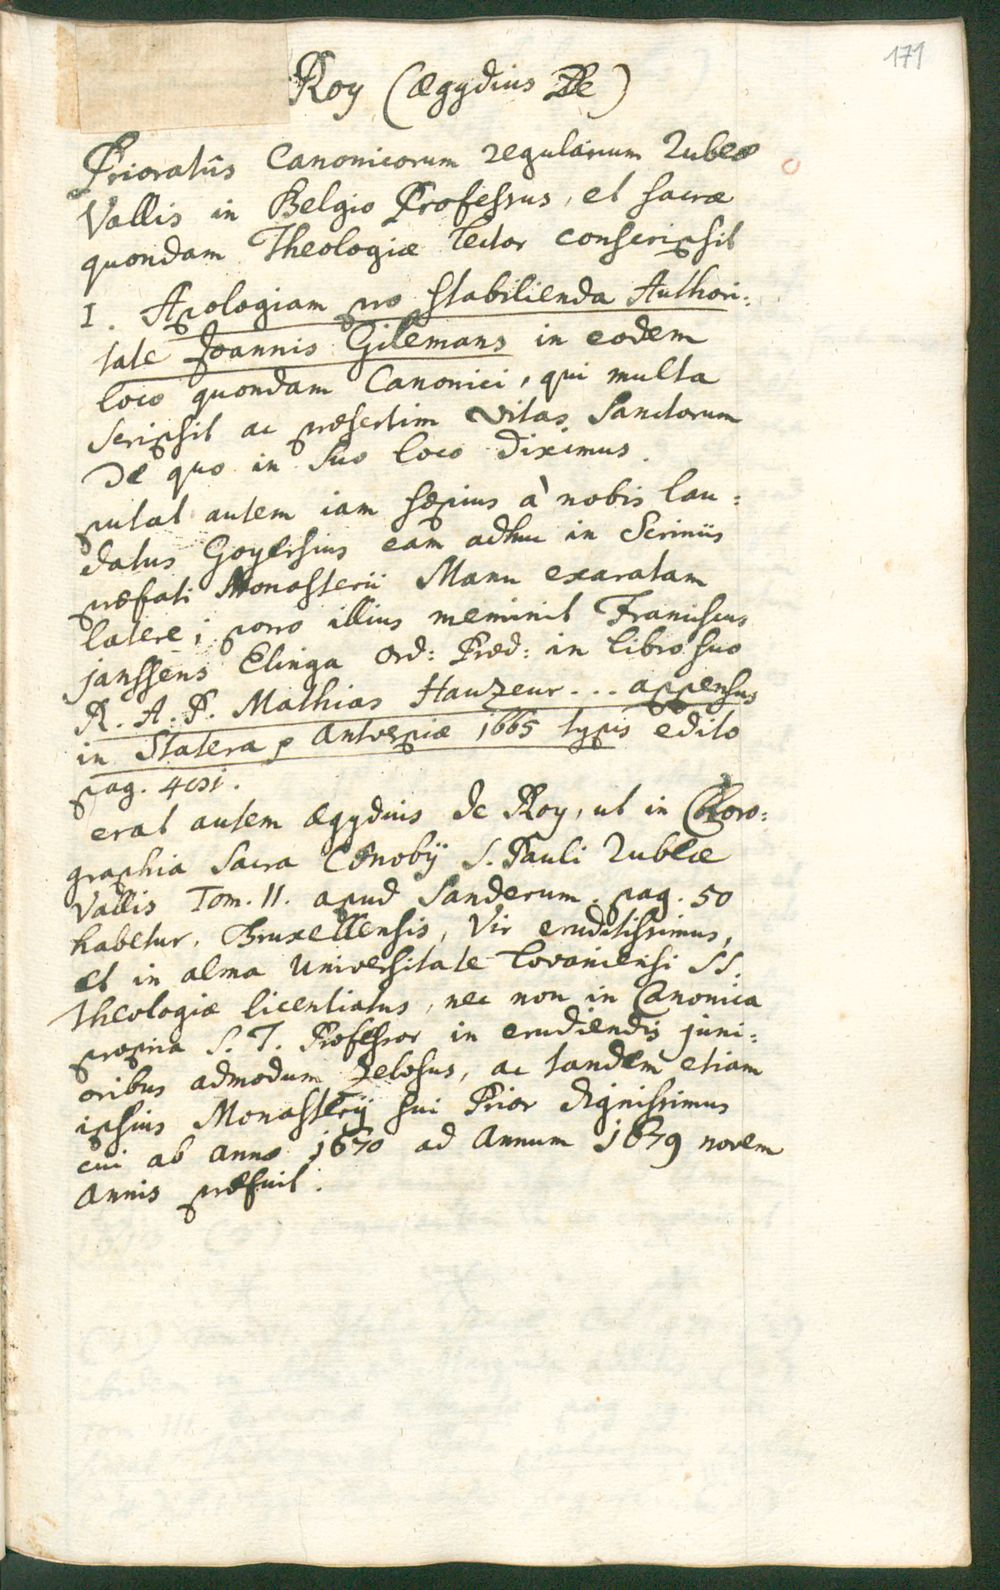 171
Roy (Ægydius De)
Prioratûs Canonicorum regularium Rubeæ
Vallis in Belgio Professus, et sacræ
quondam Theologiæ lector conscripsit
I. Apologiam pro stabilienda Authori:
tate Joannis Gilemans in eodem
loco quondam Canonici, qui multa
scripsit ac præsertim vitas Sanctorum
De quo in suo loco diximus.
putat autem iam sæpius à nobis lau:
datus Goyersius eam adhuc in Scriniis
præfati Monasterii Manu exaratam
latere; porro illius meminit Franciscus
janssens Elinga Ord: Præd: in libro suo
R. A. P. Mathias Hauzeur... appensus
in Statera, Antverpiæ 1665 typis edito
pag.
erat autem Ægydius de Roy, ut in Choro:
graphia Sacra Cœnobij S. Pauli Rubeæ
Vallis Tom. II. apud Sanderum. pag. 50
habetur. Bruxellensis, Vir eruditissimus,
et in alma Universitate Lovaniensi SS.
Theologiæ licentiatus, nec non in Canonica
propria S. T. Professor in erudiendis juni:
oribus admodum zelosus, ac tandem etiam
ipsius Monasterij sui Prior dignissimus
cui ab anno 1670 ad Annum 1679 novem
Annis præfuit.